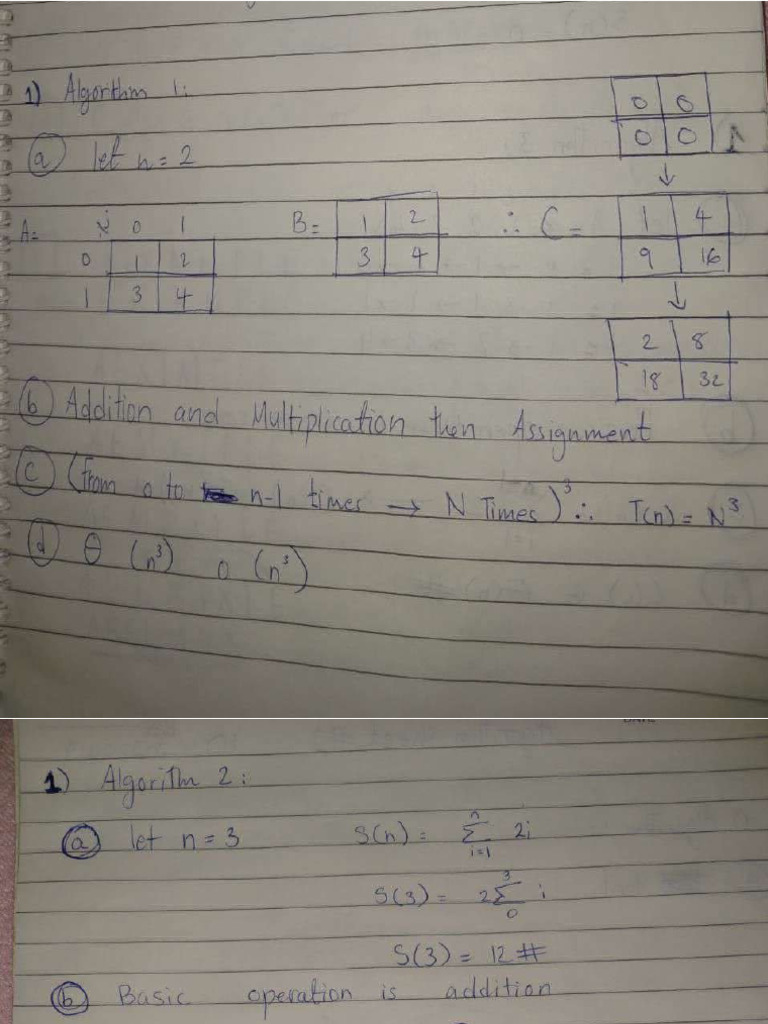 1) Algorithm 1:
0 0
0 0
(a) let n = 2
A= 0 1
0 1 2
1 3 4
B= 1 2
3 4
∴ C= 1 4
9 16
↓
2 8
18 32
(b) Addition and Multiplication then Assignment
(c) (From 0 to n-1 times → N Times)³ ∴ T(n) = N³
(d) θ (n³) O (n³)
1) Algorithm 2:
(a) let n = 3 S(n) = n Σ i=1 2i
S(3) = 2 3 Σ 0 i
S(3) = 12 #
(b) Basic operation is addition